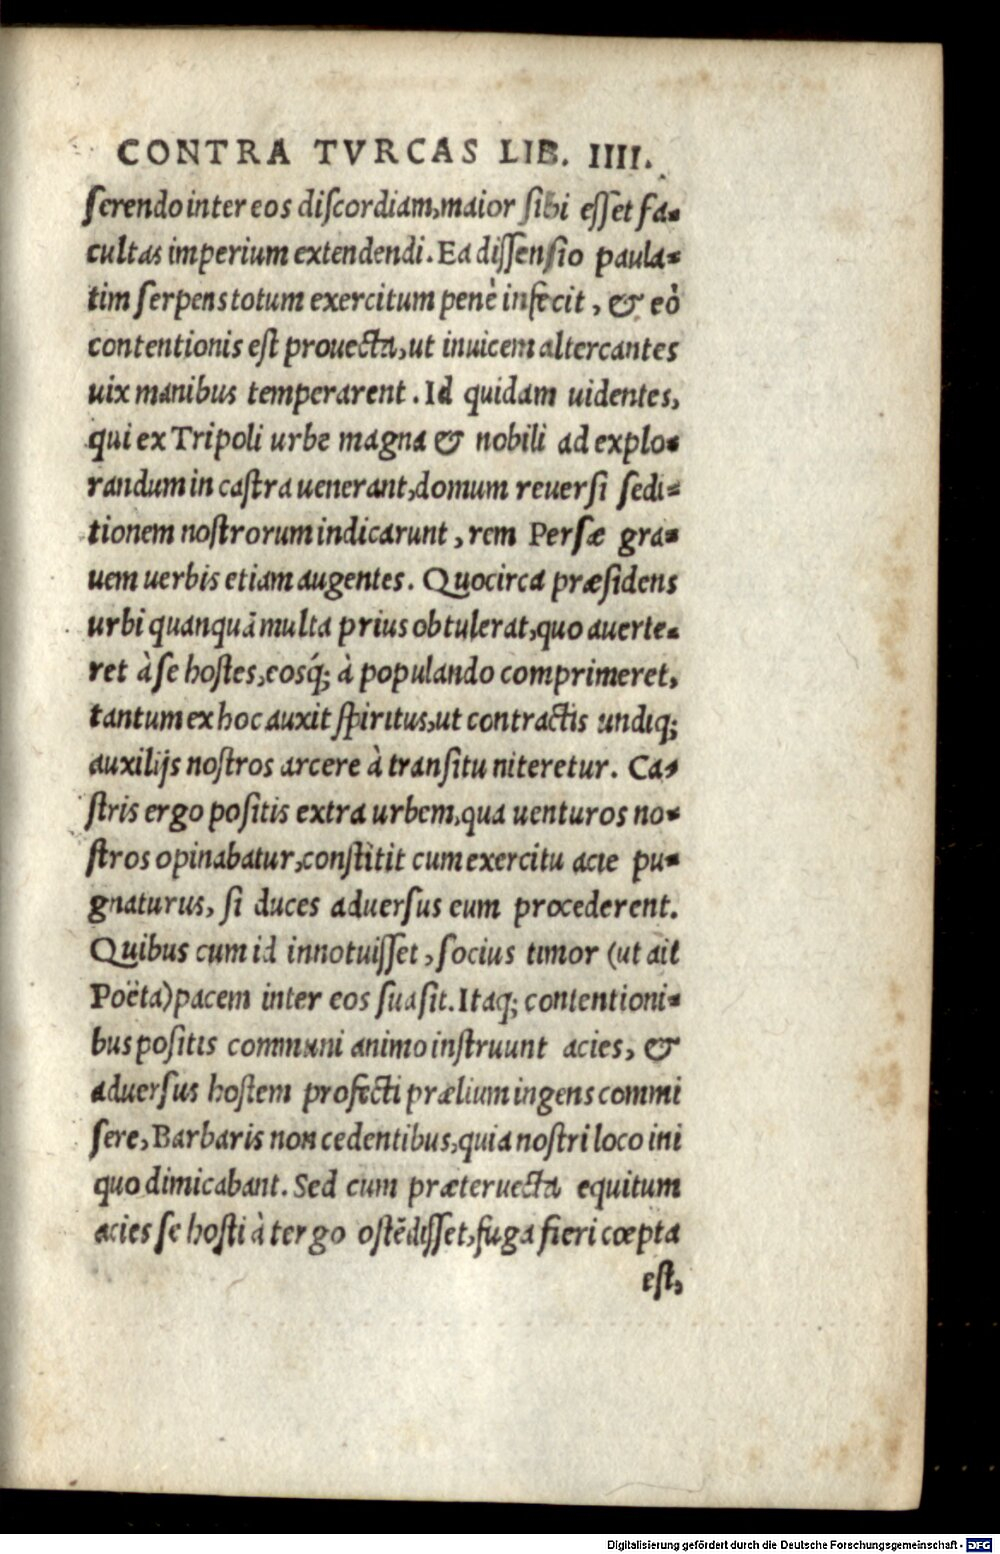 CONTRA TVRCAS LIB. IIII.
ſerendo inter eos diſcordiam, maior ſibi eſſet fa-
cultas imperium extendendi. Ea diſſenſio paula-
tim ſerpens totum exercitum penè infecit, & eò
contentionis eſt prouecta, ut inuicem altercantes
uix manibus temperarent. Id quidam uidentes,
qui ex Tripoli urbe magna & nobili ad explo-
randum in caſtra uenerant, domum reuerſi ſedi-
tionem noſtrorum indicarunt, rem Perſæ gra-
uem uerbis etiam augentes. Quocirca præſidens
urbi quanquā multa prius obtulerat, quo auerte-
ret à ſe hoſtes, eosq́; à populando comprimeret,
tantum ex hoc auxit ſpiritus, ut contractis undiq;
auxilijs noſtros arcere à tranſitu niteretur. Ca-
ſtris ergo poſitis extra urbem, qua uenturos no-
ſtros opinabatur, conſtitit cum exercitu acie pu-
gnaturus, ſi duces aduerſus eum procederent.
Quibus cum id innotuiſſet, ſocius timor (ut ait
Poëta) pacem inter eos ſuaſit. Itaq; contentioni-
bus poſitis communi animo inſtruunt acies, &
aduerſus hoſtem profecti prælium ingens commi
ſere, Barbaris non cedentibus, quia noſtri loco ini
quo dimicabant. Sed cum præteruecta equitum
acies ſe hoſti à tergo oſtēdiſſet, fuga fieri cœpta
eſt,
Digitalisierung gefördert durch die Deutsche Forschungsgemeinschaft - DFG